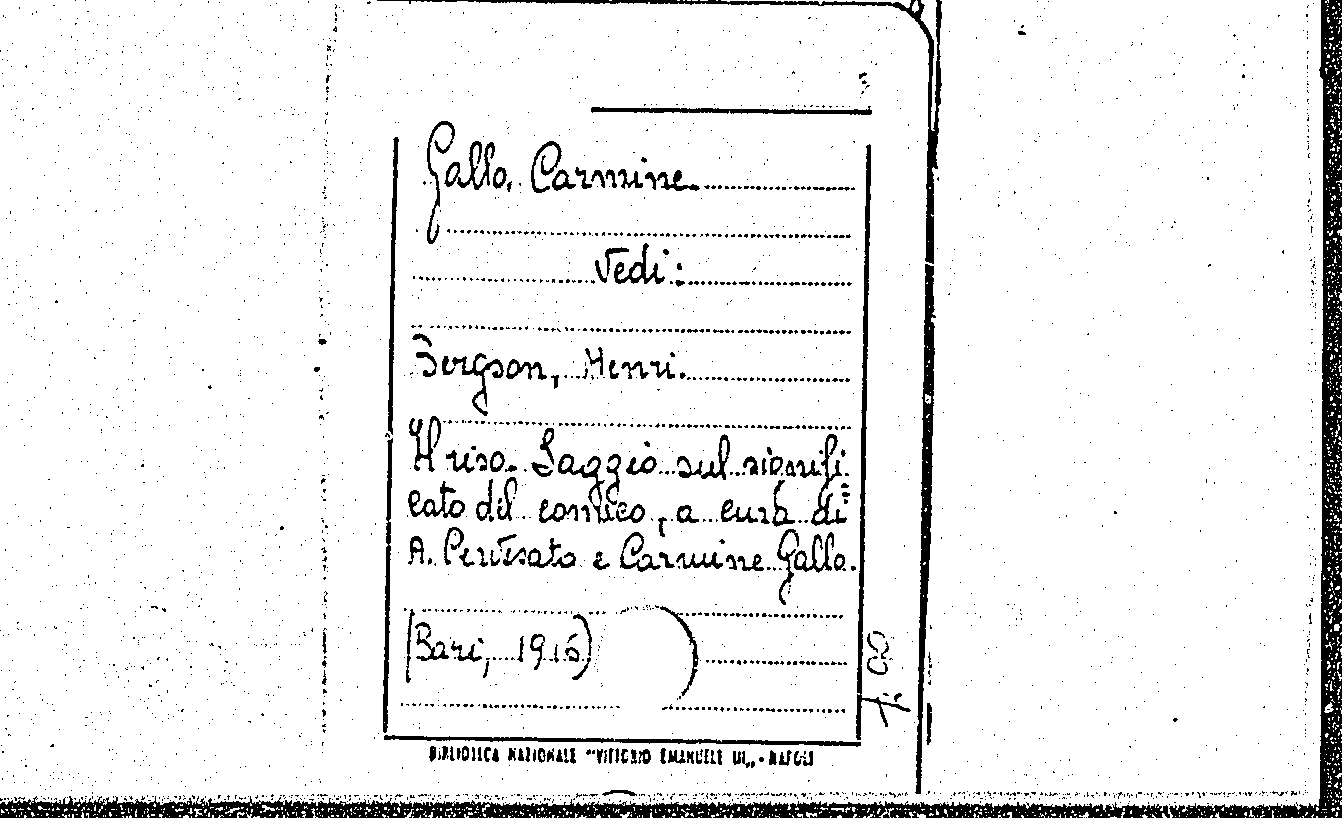 Gallo, Carmine.
Vedi:
Bergson, Henri.
Il riso. Saggio sul signifi=
cato del comico, a cura di
A. Cervesato e Carmine Gallo.
(Bari, 1916)
BIBLIOTECA NAZIONALE "VITTORIO EMANUELE III„ - NAPOLI